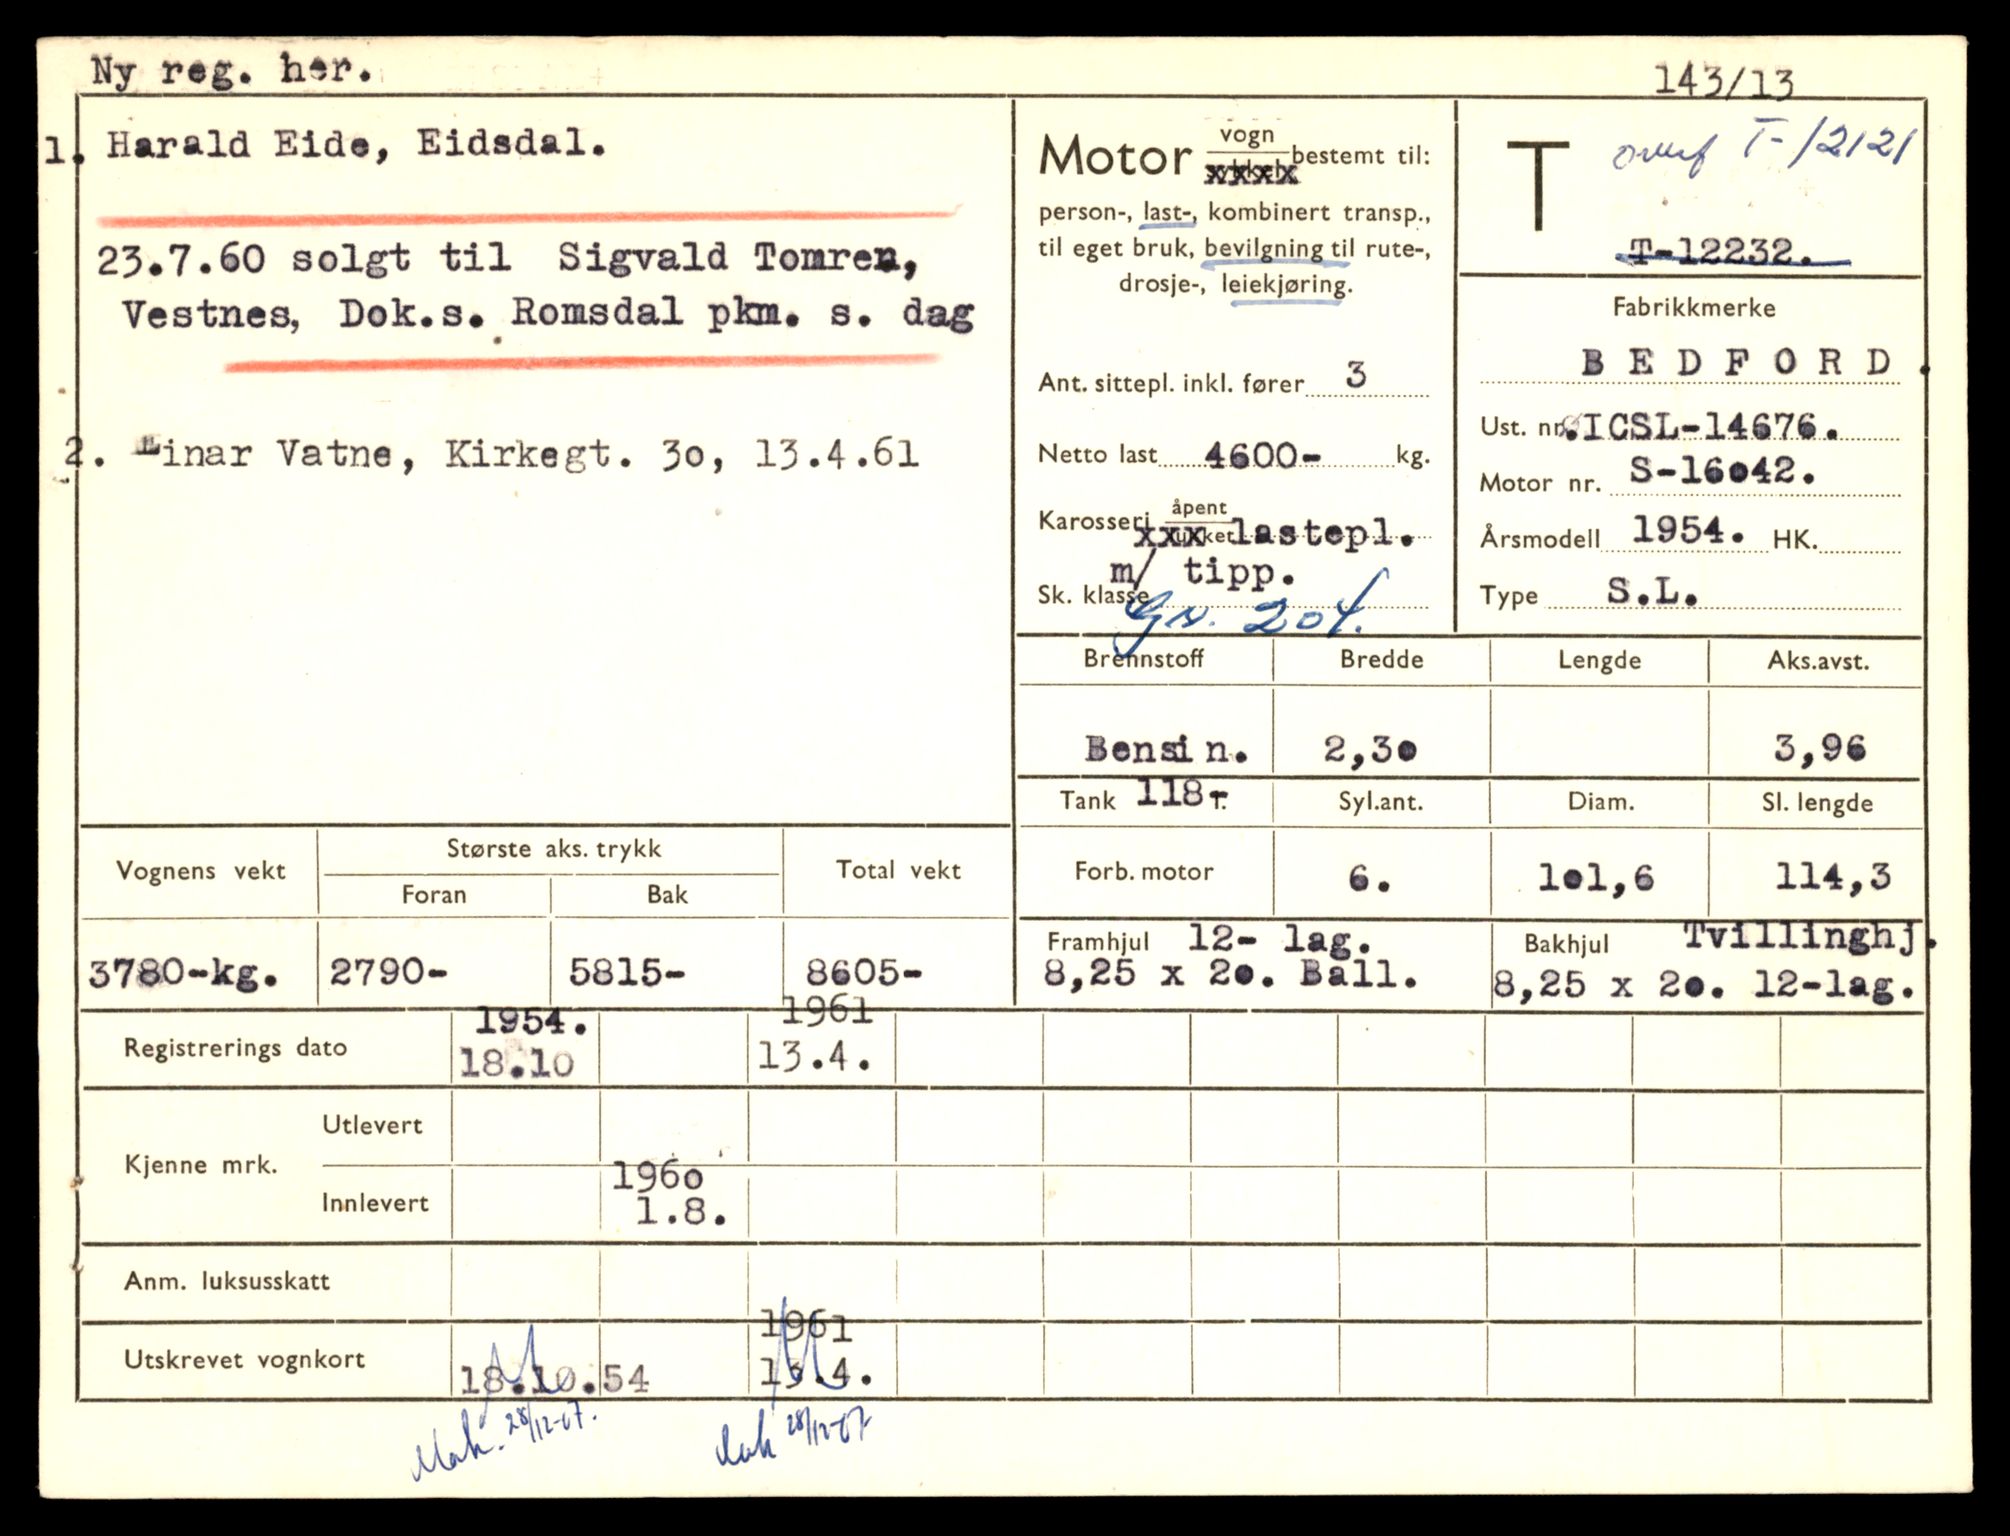 Ny reg. her.
143/13
1. Harald Eide, Eidsdal.
23.7.60 solgt til Sigvald Tomren,
Vestnes, Dok.s. Romsdal pkm. s. dag
2. Einar Vatne, Kirkegt. 3o, 13.4.61
Motor vogn bestemt til:
person-, last-, kombinert transp.,
til eget bruk, bevilgning til rute-,
drosje-, leiekjøring.
Ant. sittepl. inkl. fører 3
Netto last 4600- kg.
Karosseri åpent xxx lastepl.
m/ tipp.
Sk. klasse Gn. 204.
T overf T-12121
T-12232.
Fabrikkmerke
BEDFORD.
Ust. nr. ICSL-14676.
Motor nr. S-16042.
Årsmodell 1954. HK.
Type S.L.
Brennstoff Bredde Lengde Aks.avst.
Bensin. 2,30 3,96
Tank 118 Syl.ant. Diam. Sl. lengde
Forb. motor 6. 101,6 114,3
Framhjul 12- lag. Bakhjul Tvillinghj.
8,25 x 20. Ball. 8,25 x 20. 12-lag.
Vognens vekt Største aks. trykk Total vekt
Foran Bak
3780-kg. 2790- 5815- 8605-
1954. 1961
Registrerings dato 18.10 13.4.
Utlevert
Kjenne mrk.
1960
Innlevert 1.8.
Anm. luksusskatt
1961
Utskrevet vognkort 18.10.54 13.4.
Mak. 28/12-67. Mak 28/12-67